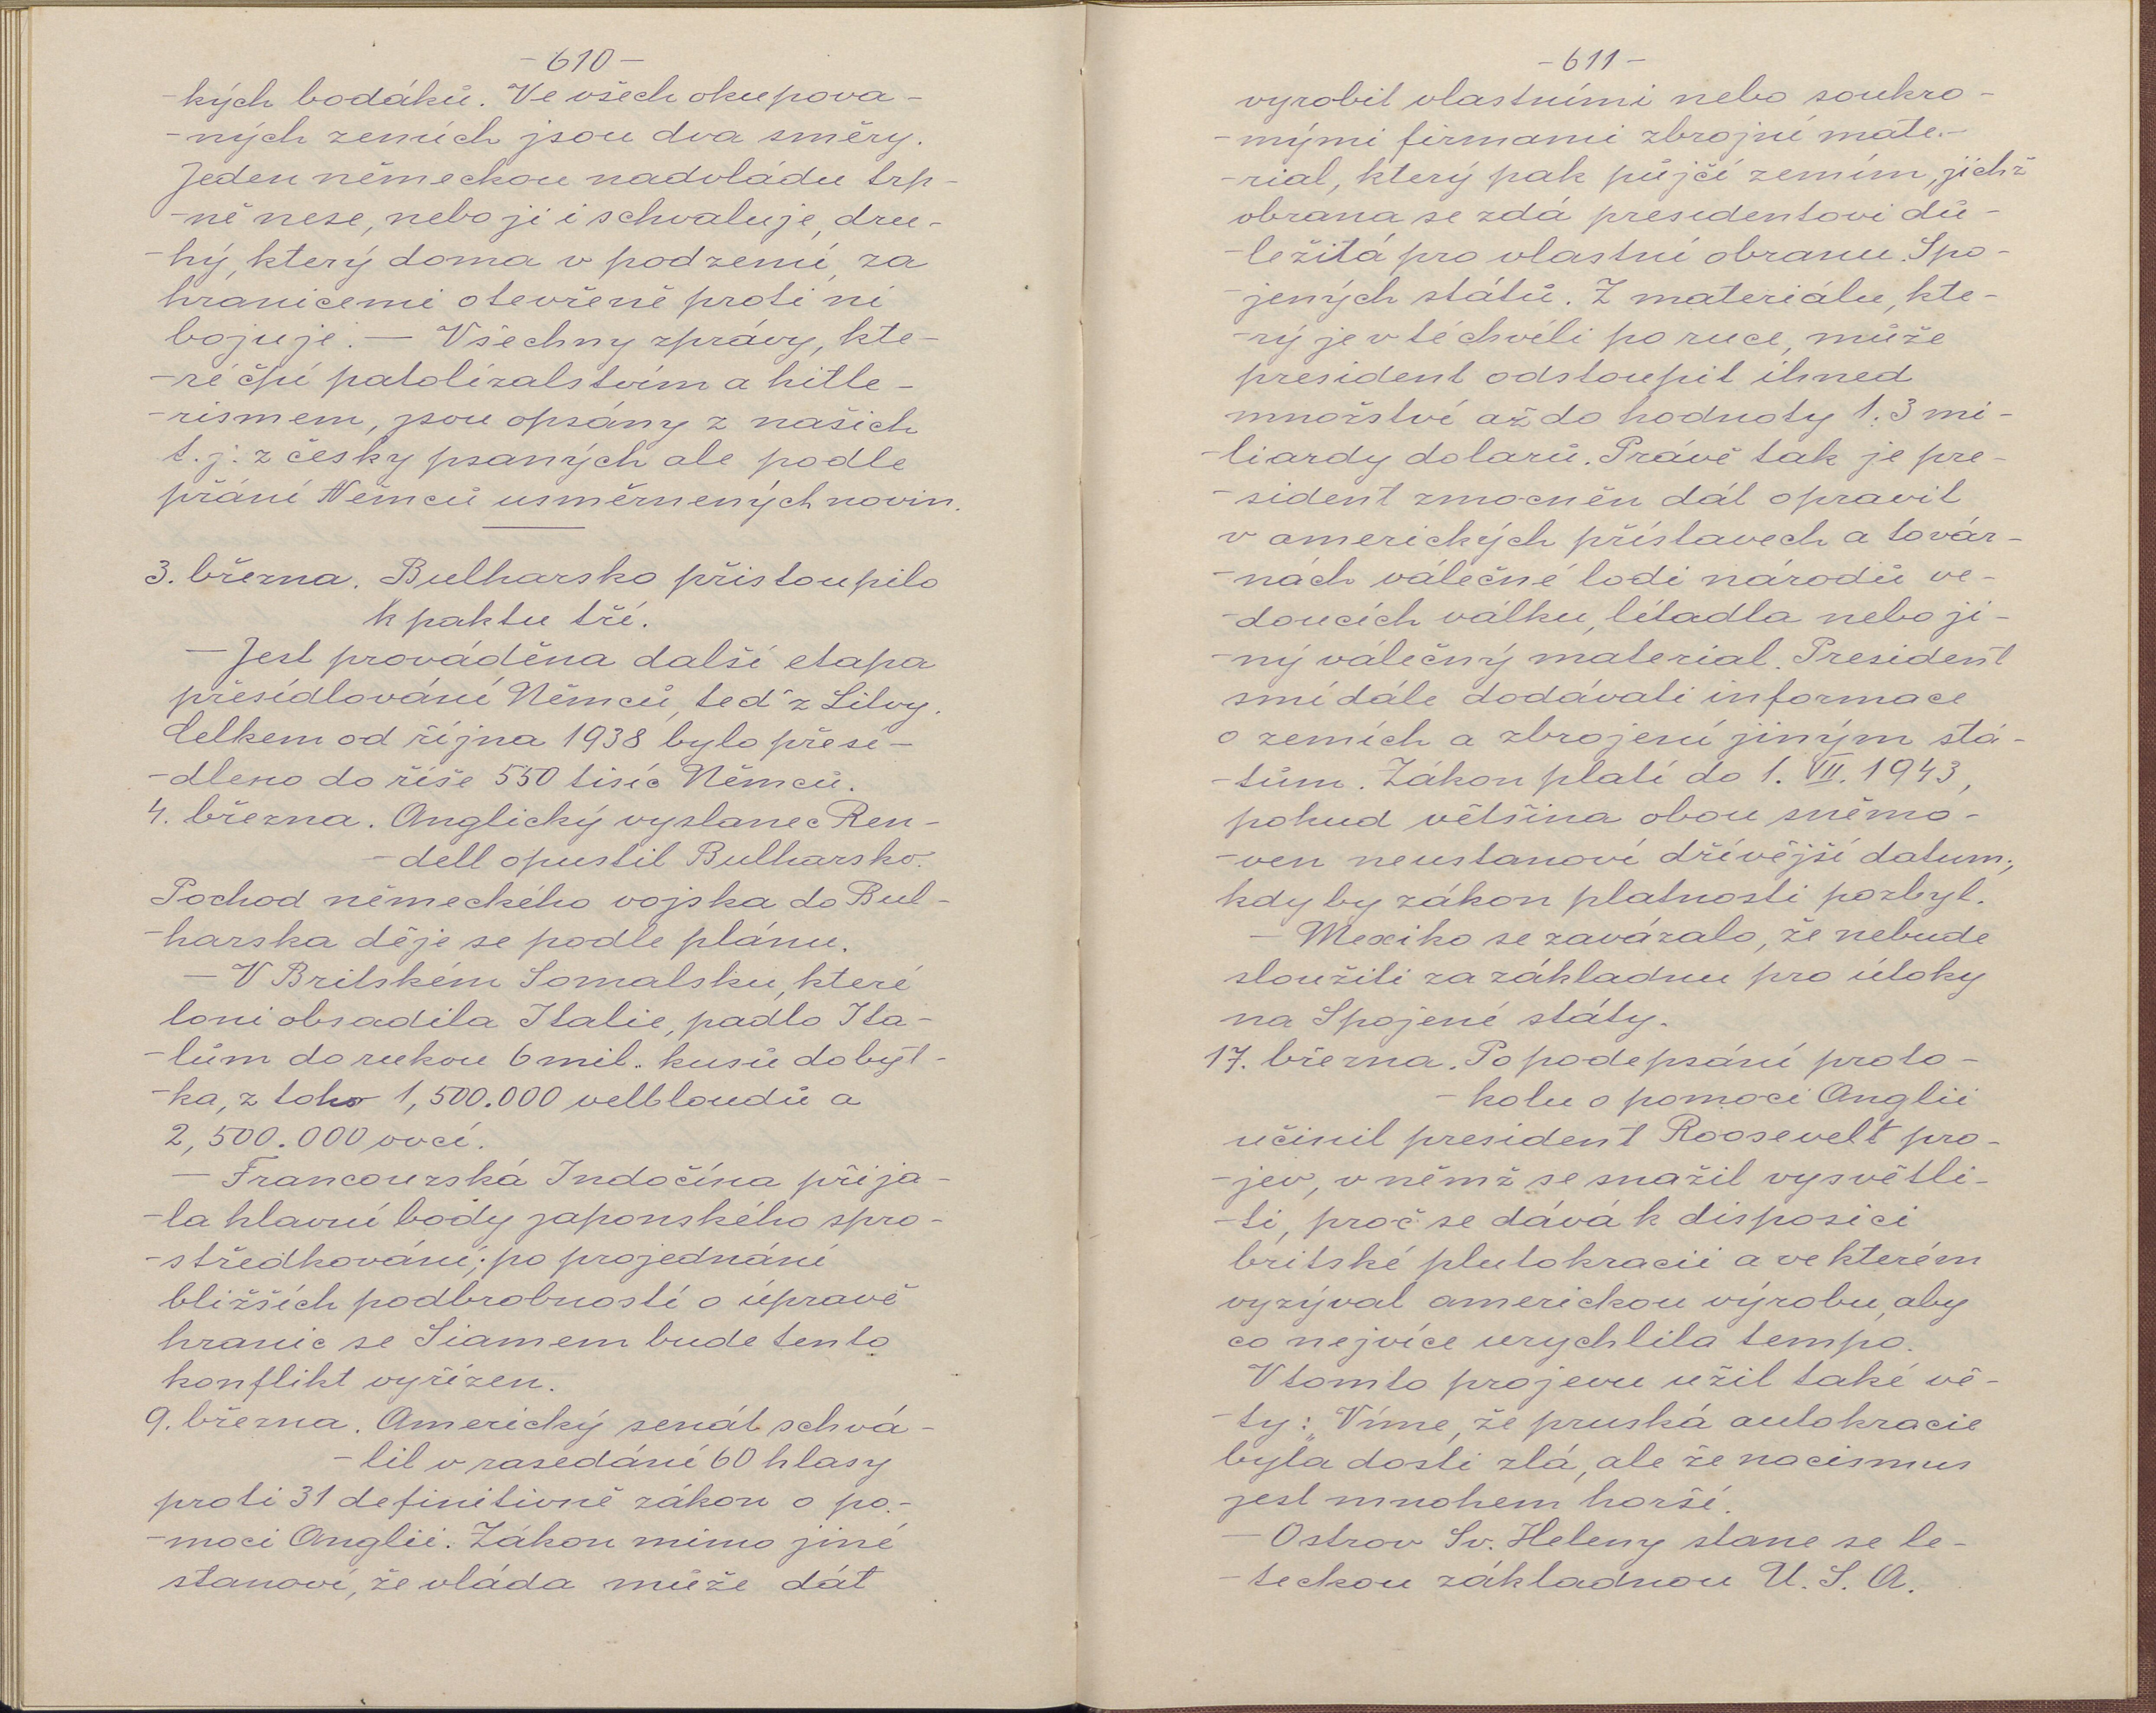 - 610 -
-kých bodáků. Ve všech okupova-
-ných zemích jsou dva směry.
Jeden německou nadvládu trp-
-ně nese, nebo ji i schvaluje, dru-
-hý, který doma v podzemí, za
hranicemi otevřeně proti ní
bojuje. — Všechny zprávy, kte-
-ré čpí patolízalstvím a hitle-
-rismem, jsou opsány z našich
t. j. z česky psaných ale podle
přání Němců usměrnených novin.
3. března. Bulharsko přistoupilo
k paktu tří.
— Jest prováděna další etapa
přesídlování Němců, teď z Litvy.
Celkem od října 1938 bylo přesí-
-dleno do říše 550 tisíc Němců.
4. března. Anglický vyslanec Ren-
-dell opustil Bulharsko.
Pochod německého vojska do Bul-
-harska děje se podle plánu.
— V Britském Somalsku, které
loni obsadila Italie, padlo Ita-
-lům do rukou 6 mil. kusů dobyt-
-ka, z toho 1,500.000 velbloudů a
2,500.000 ovcí.
— Francouzská Indočína přija-
-la hlavní body japonského spro-
-středkování; po projednání
bližších podbrobností o úpravě
hranic se Siamem bude tento
konflikt vyřízen.
9. března. Americký senát schvá-
-lil v zasedání 60 hlasy
proti 31 definitivně zákon o po-
-moci Anglii. Zákon mimo jiné
stanoví, že vláda může dát
- 611 -
vyrobit vlastními nebo soukro-
-mými firmami zbrojní mate-
-rial, který pak půjčí zemím, jichž
obrana se zdá presidentovi dů-
-ležitá pro vlastní obranu Spo-
-jených států. Z materiálu, kte-
-rý je v té chvíli po ruce, může
president odstoupit ihned
množství až do hodnoty 1.3 mi-
-liardy dolarů. Právě tak je pre-
-sident zmocněn dát opravit
v amerických přístavech a továr-
-nách válečné lodi národů ve-
-doucích válku, létadla nebo ji-
-ný válečný material. President
smí dále dodávati informace
o zemích a zbrojení jiným stá-
-tům. Zákon platí do 1. VII. 1943,
pokud většina obou sněmo-
-ven neustanoví dřívější datum,
kdy by zákon platnosti pozbyl.
— Mexiko se zavázalo, že nebude
sloužiti za základnu pro útoky
na Spojené státy.
17. března. Po podepsání proto-
-kolu o pomoci Anglii
učinil president Roosewelt pro-
-jev, v němž se snažil vysvětli-
-ti, proč se dává k disposici
britské plutokracii a ve kterém
vyzýval americkou výrobu, aby
co nejvíce urychlila tempo.
V tomto projevu užil také vě-
-ty: „Víme, že pruská autokracie
byla dosti zlá, ale že nacismus
jest mnohem horší.
— Ostrov Sv. Heleny stane se le-
-teckou základnou U. S. A.